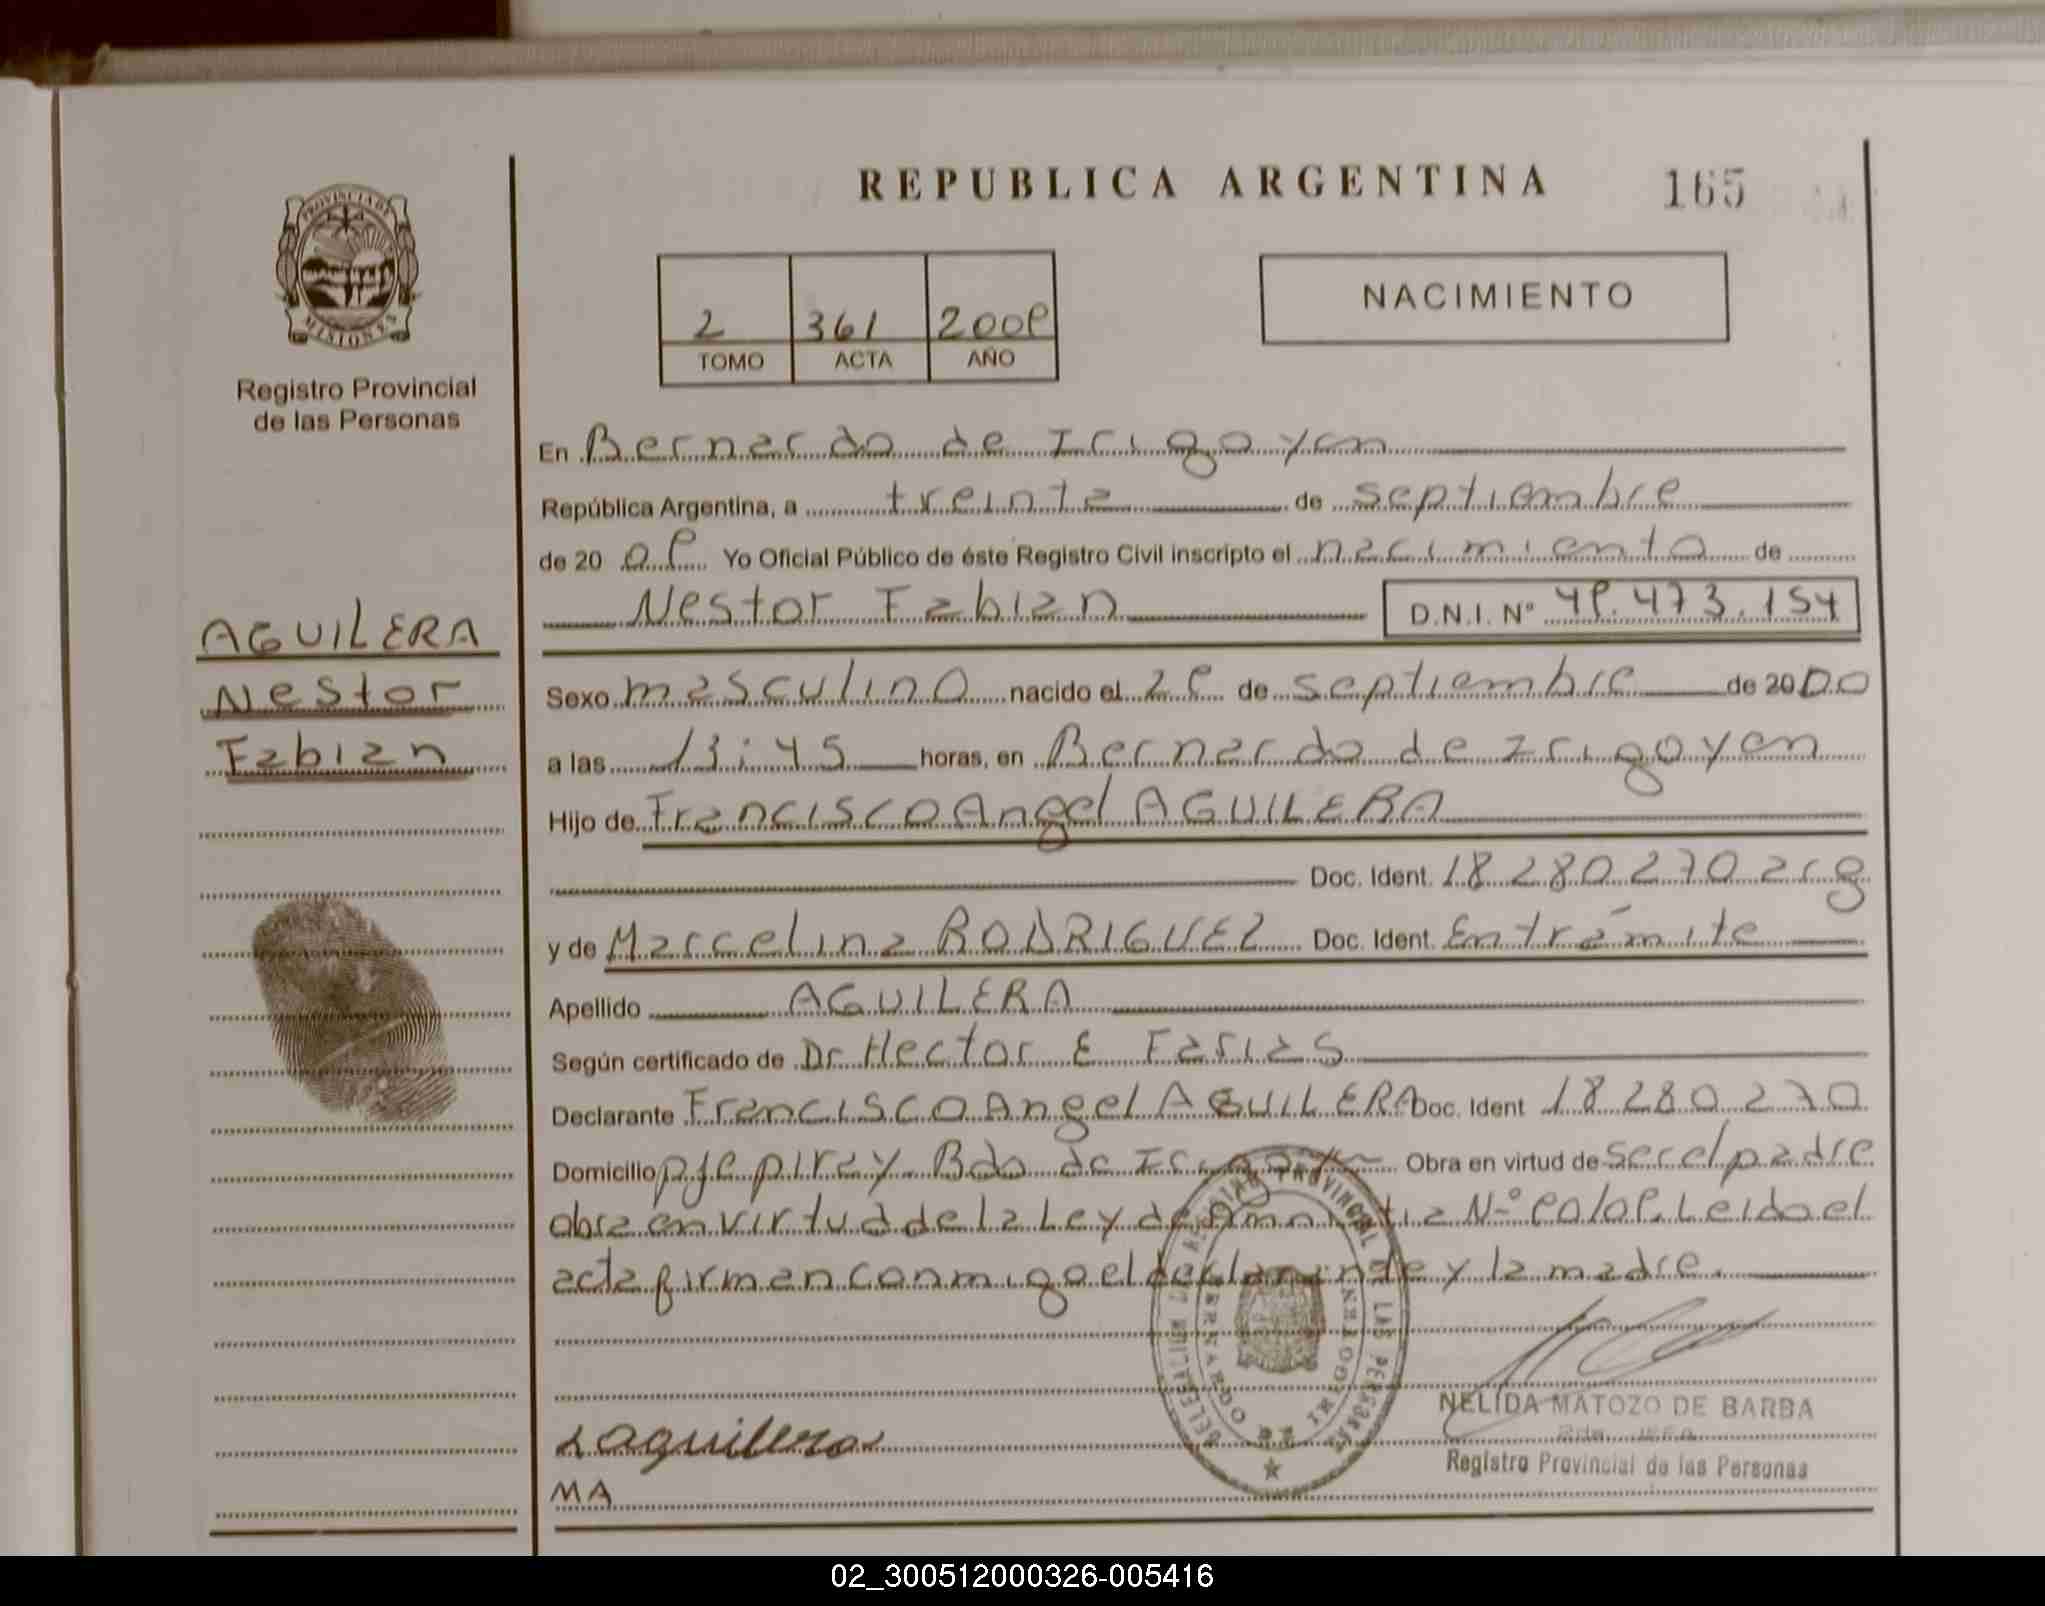 REPUBLICA ARGENTINA 165
PROVINCIA DE MISIONES
2 361 2009
TOMO ACTA AÑO
NACIMIENTO
Registro Provincial
de las Personas
En Bernardo de Irigoyen
República Argentina, a treinta de septiembre
de 20 09 Yo Oficial Público de éste Registro Civil inscripto el nacimiento de
Nestor Fabian D.N.I. Nº 49.473.154
AGUILERA
Nestor
Fabian
Sexo masculino nacido el 29 de septiembre de 2000
a las 13:45 horas, en Bernardo de Irigoyen
Hijo de Francisco Angel AGUILERA
Doc. Ident. 18 280 270 arg
y de Marcelina RODRIGUEZ Doc. Ident. En trámite
Apellido AGUILERA
Según certificado de Dr Hector E Farias
Declarante Francisco Angel AGUILERA Doc. Ident 18 280 270
Domicilio pje piray Bdo de Irigoyen Obra en virtud de ser el padre
obra en virtud de la Ley de Amnistia Nº 90/09. Leido el
acta firman conmigo el declarante y la madre.
DELEGACION DEL REGISTRO PROVINCIAL DE LAS PERSONAS
BERNARDO DE IRIGOYEN
NELIDA MATOZO DE BARBA
2da. JEFA
Registro Provincial de las Personas
aguilera
MA
02_300512000326-005416